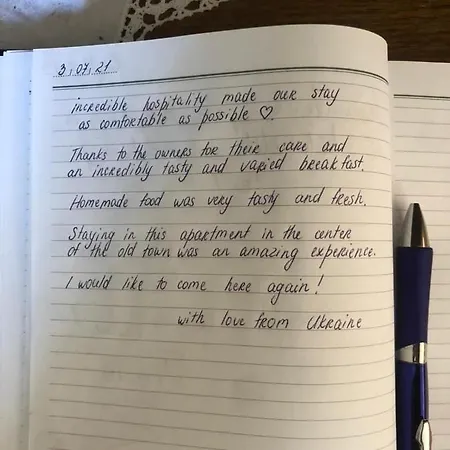 3.07.21
incredible hospitality made our stay
as comfortable as possible ♡.
Thanks to the owners for their care and
an incredibly tasty and varied breakfast.
Homemade food was very tasty and fresh.
Staying in this apartment in the center
of the old town was an amazing experience.
I would like to come here again!
with love from Ukraine